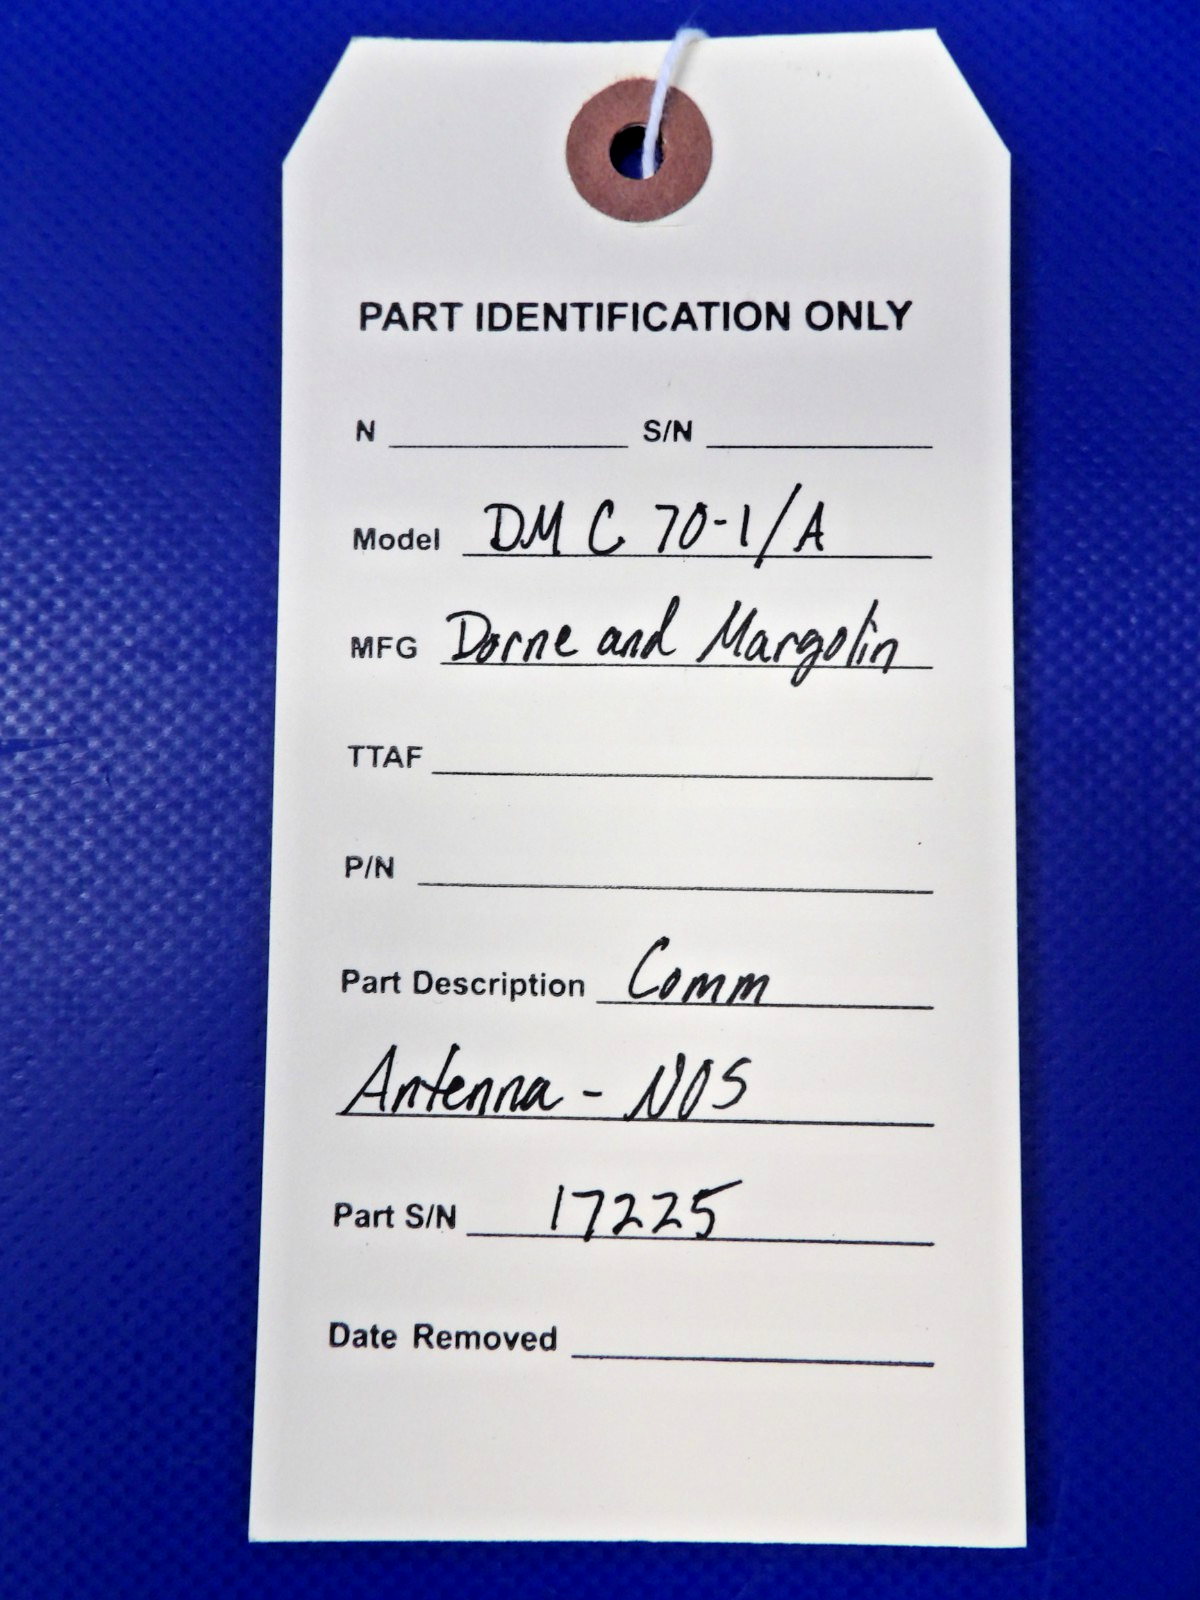 PART IDENTIFICATION ONLY
N S/N
Model DM C 70-1/A
MFG Dorne and Margolin
TTAF
P/N
Part Description Comm
Antenna - NOS
Part S/N 17225
Date Removed